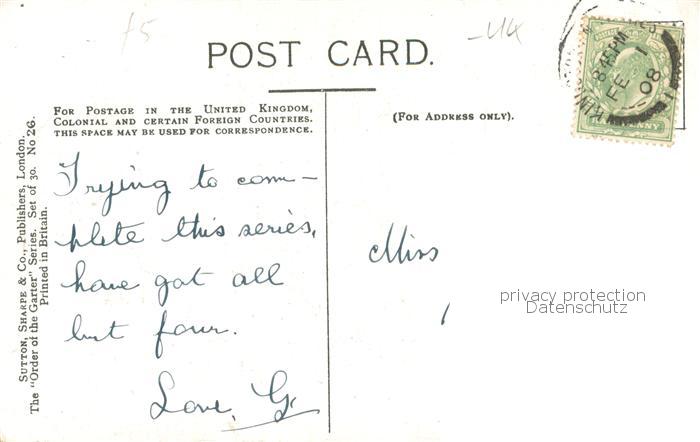 £5
-44
POST CARD.
FOR POSTAGE IN THE UNITED KINGDOM,
COLONIAL AND CERTAIN FOREIGN COUNTRIES.
THIS SPACE MAY BE USED FOR CORRESPONDENCE.
(FOR ADDRESS ONLY).
8 45 PM
FE 1
08
SUTTON, SHARPE & CO., Publishers, London.
The "Order of the Garter" Series. Set of 30. No 26.
Printed in Britain.
Trying to com-
plete this series,
have got all
but four.
Love, G.
Miss
privacy protection
Datenschutz